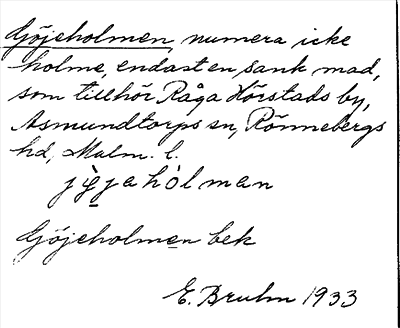 Göjeholmen, numera icke
holme, endast en sank mad,
som tillhör Råga Hörstads by,
Asmundtorps sn, Rönnebergs
hd, Malm. l.
jø̀jahòlman
Göjeholmen bek
E. Bruhn 1933